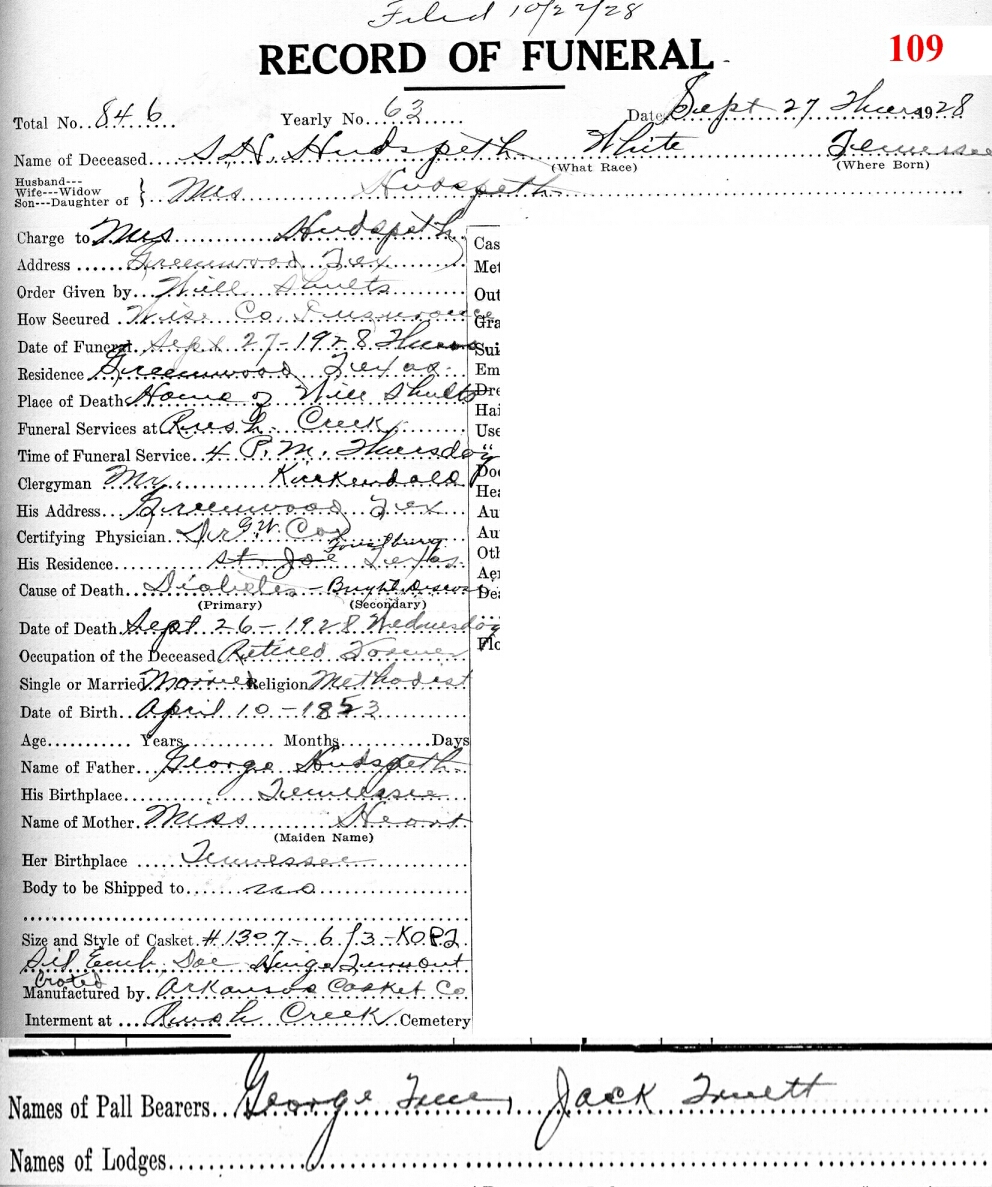 Filed 10/27/28
RECORD OF FUNERAL
109
Total No. 846 Yearly No. 63 Date Sept 27 Thurs 1928
Name of Deceased S.H. Hudspeth White Tennessee
(What Race) (Where Born)
Husband---
Wife---Widow
Son---Daughter of } Mrs Hudspeth
Charge to Mrs Hudspeth
Cas
Address Greenwood Tex
Met
Order Given by Will Shults
Out
How Secured Wise Co. Insurance
Gra
Date of Funeral Sept 27-1928 Thurs
Sui
Residence Greenwood Texas
Em
Place of Death Home of Will Shults
Dre
Hai
Funeral Services at Rush Creek
Use
Time of Funeral Service 4 P.M. Thursday
"
Clergyman Mr. Kirkendald
Doc
Hea
His Address Greenwood Tex
Au
Certifying Physician Dr G.W. Cox
Au
Forestburg
His Residence St. Joe Texas
Oth
Aer
Cause of Death Diabetes - Bright Disease
Dea
(Primary) (Secondary)
Date of Death Sept 26-1928 Wednesday
Flo
Occupation of the Deceased Retired Farmer
Single or Married Married Religion Methodist
Date of Birth April 10-1853
Age Years Months Days
Name of Father George Hudspeth
His Birthplace Tennessee
Name of Mother Miss Heart
(Maiden Name)
Her Birthplace Tennessee
Body to be Shipped to no
Size and Style of Casket #1307-6/3-
Sil Doe Hinge
Crated
Manufactured by Arkansas Casket Co
Interment at Rush Creek Cemetery
Names of Pall Bearers George, Jack Truett
Names of Lodges